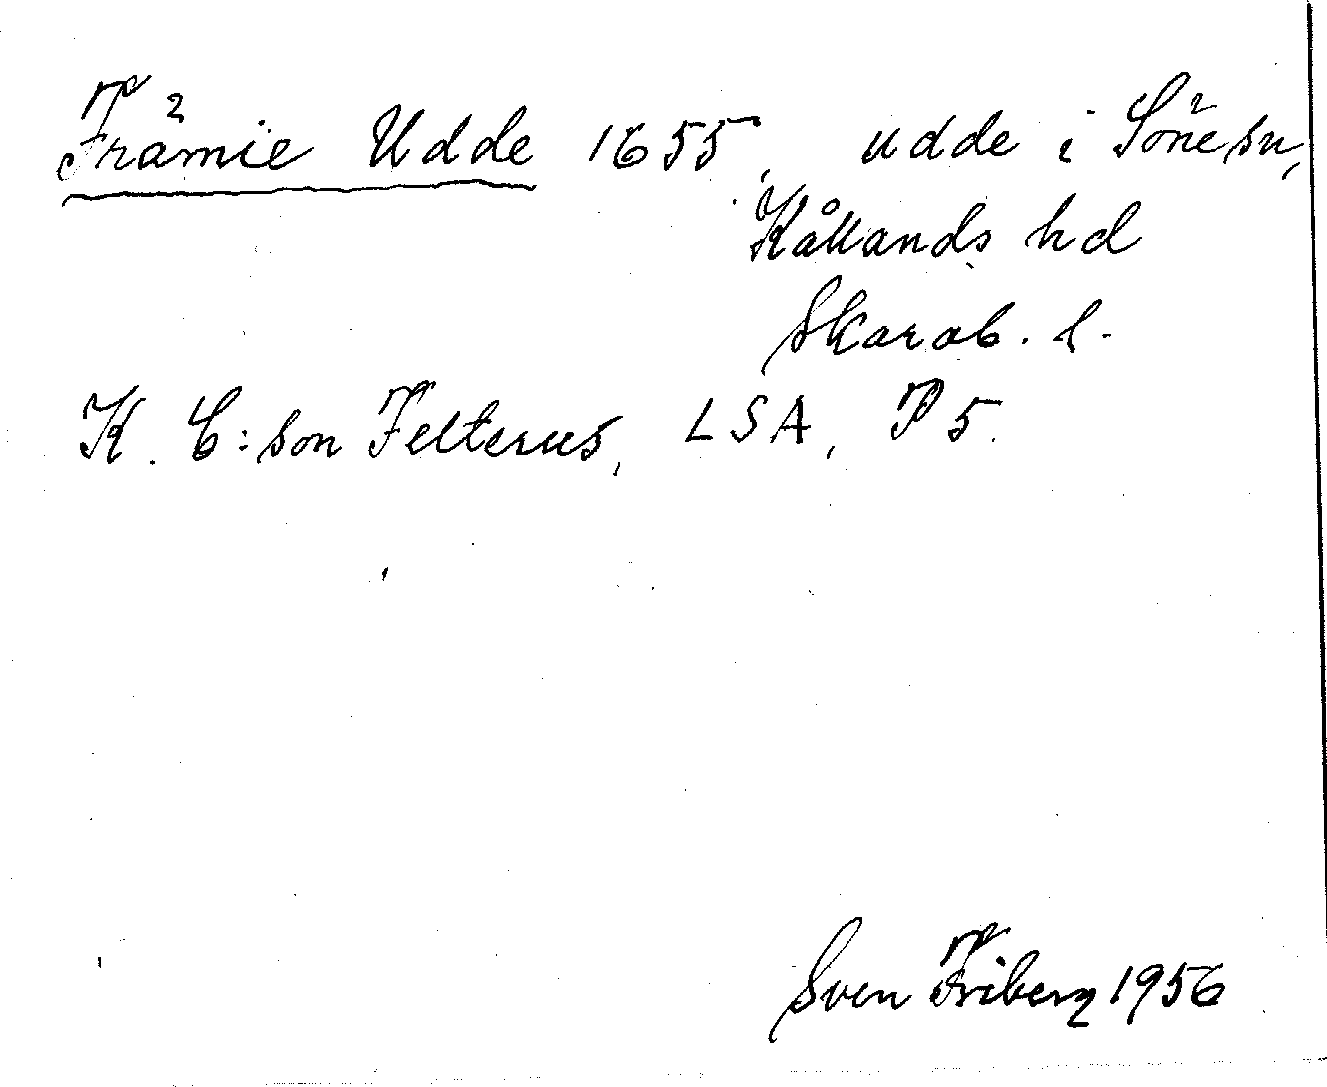 Främie Udde 1655, udde i Söne sn,
Kållands hd
Skarab. l.
K. C:son Felterus, LSA, P 5.
Sven Friberg 1956